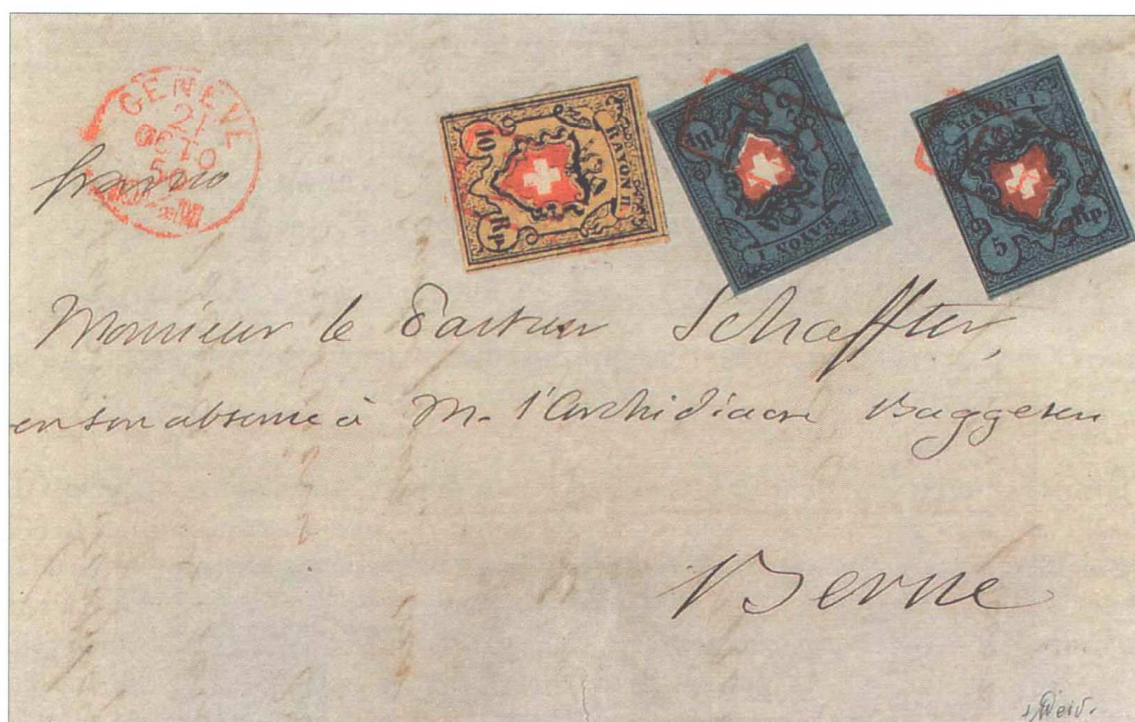 GENÈVE
21
OCTO
franco
10 Rp. RAYON II.
RAYON I.
RAYON I.
5 Rp.
Monsieur le Pasteur Schaffter,
en son absence à M. l'Archidiacre Baggesen
Berne